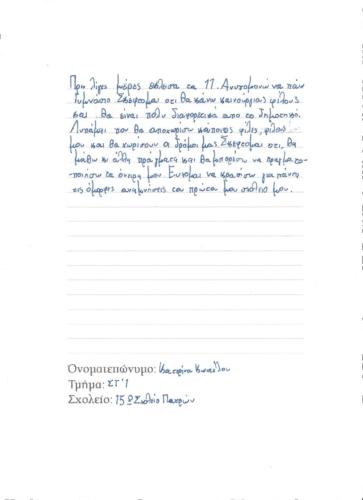 Πριν λίγες μέρες έκλεισα τα 11. Ανυπομονώ να πάω
Γυμνάσιο Σκέφτομαι οτι θα κάνω καινούργιους φίλους
και θα είναι πολυ διαφορετικά απο το δημοτικό.
Λυπάμαι που θα αποχωρίσω κάποιους φίλες, φίλους
μου και θα χωρίσουν οι δρόμοι μας Σκέφτομαι οτι, θα
μάθω κι άλλα πράγματα και θα μπορέσω να πραγματο-
ποιήσω τα όνειρα μου. Εύχομαι να κρατήσω για πάντα
τις όμορφες αναμνήσεις του πρώτου μου σχολείο μου.
Ονοματεπώνυμο: Κατερίνα
Τμήμα: ΣΤ'1
Σχολείο: 15º Σχολείο Πατρών